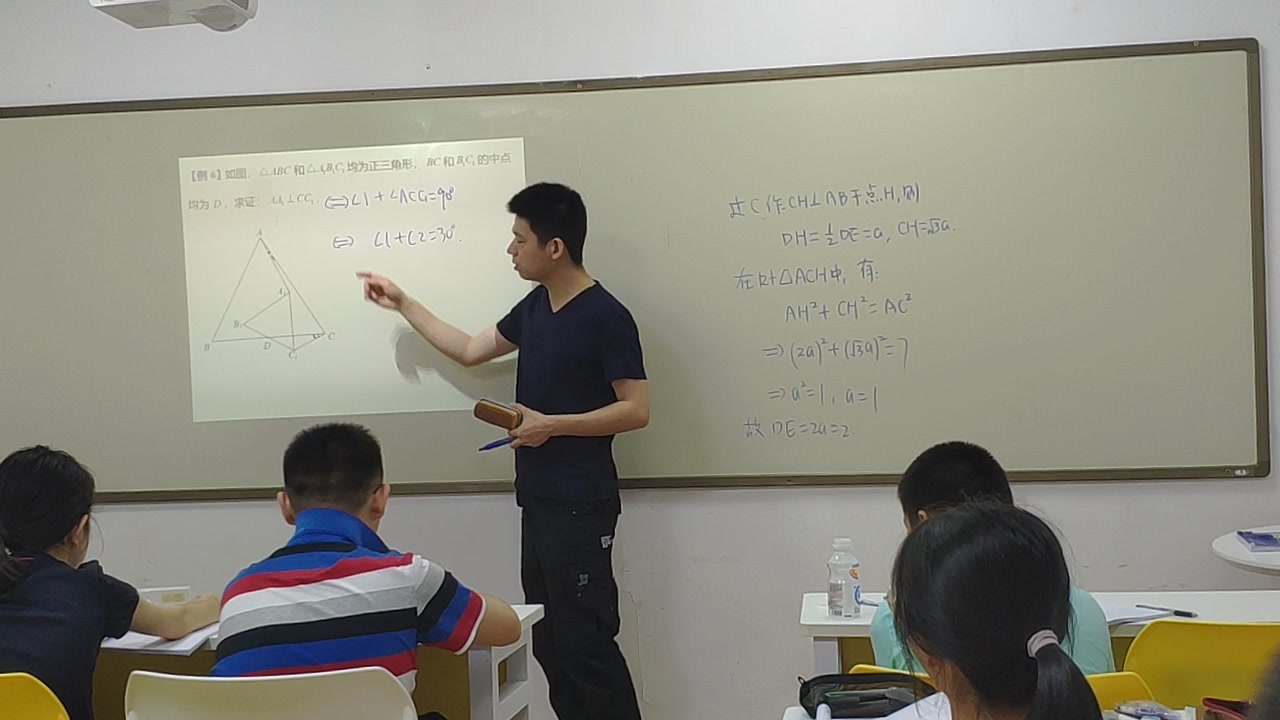 【例 6】如图，△ABC 和 △A₁B₁C₁ 均为正三角形，BC 和 B₁C₁ 的中点
均为 D，求证：AA₁⊥CC₁. ⟺ ∠1+∠ACC₁=90°
⟺ ∠1+∠2=30°.
A
A₁
B₁
B D C
C₁
过C作CH⊥AB于点H,则
DH=½DE=a, CH=√3a.
在Rt△ACH中, 有:
AH²+CH²=AC²
⇒(2a)²+(√3a)²=7
⇒a²=1, a=1
故DE=2a=2.